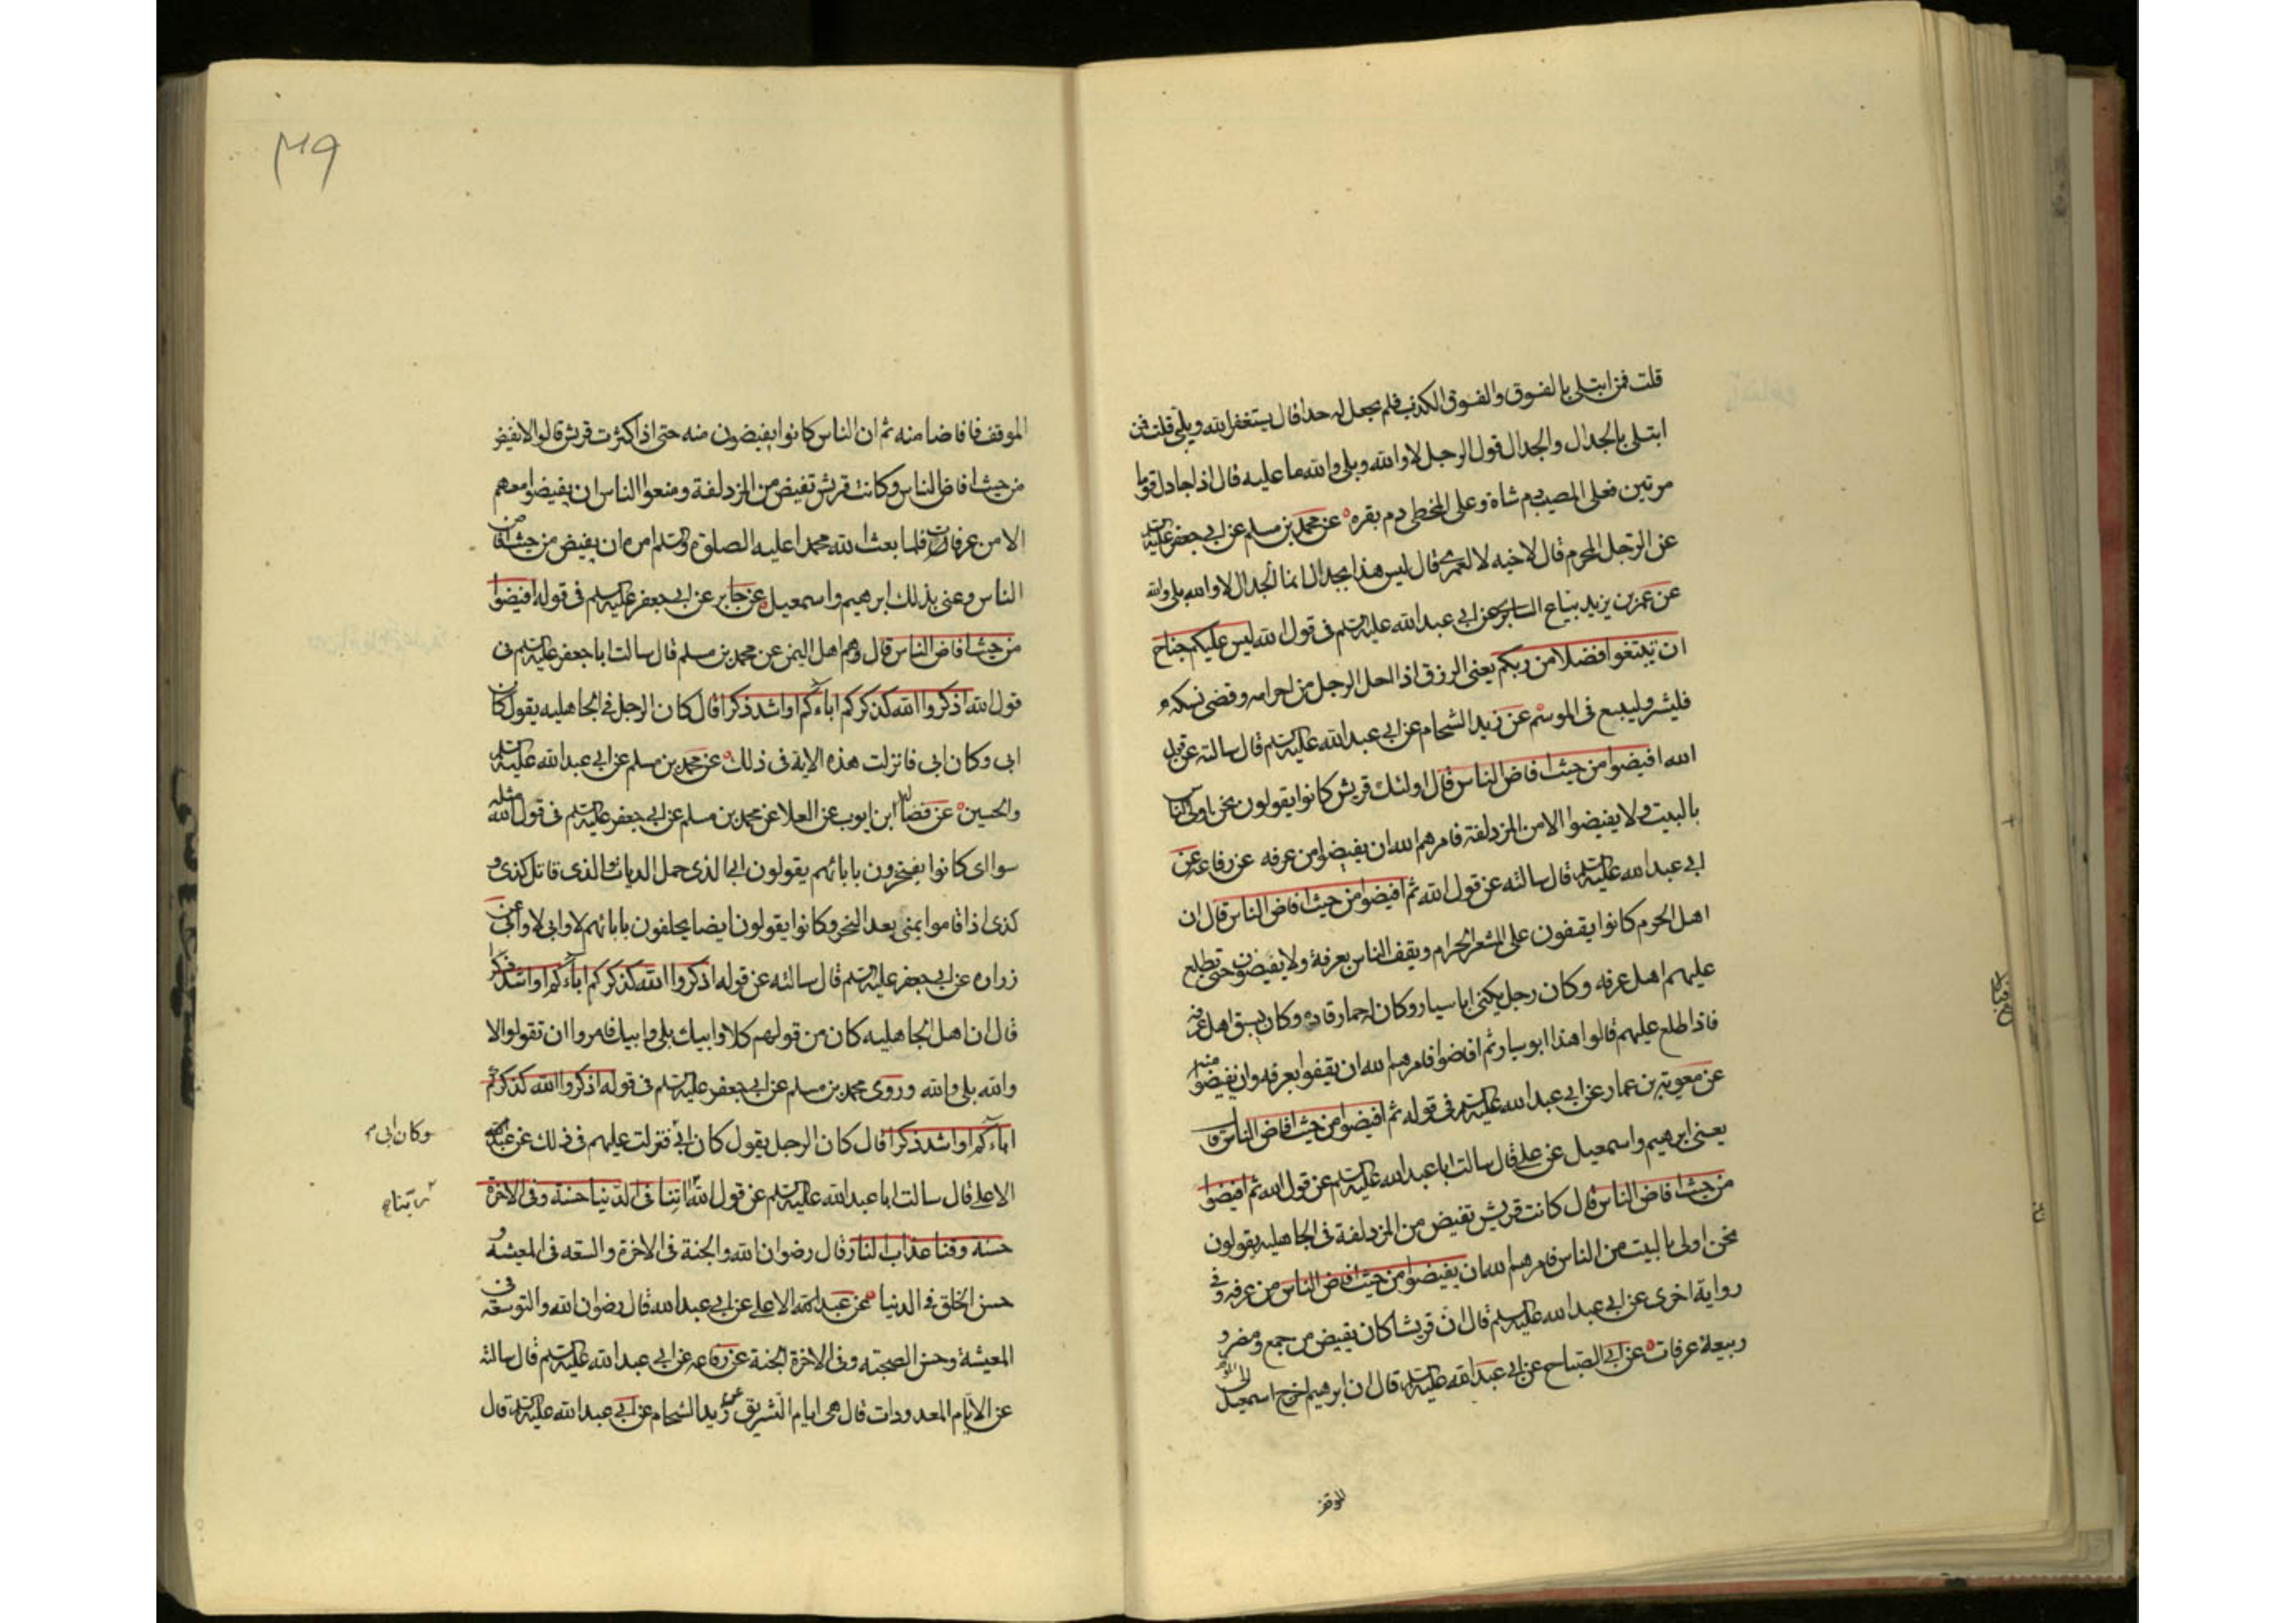 قلت فمن ابتلى بالفسوق والفسوق الكذب فلم يجعل له حدا قال يستغفر الله ويلبى قلت فمن
ابتلى بالجدال والجدال قول الرجل لا والله وبلى والله ما عليه قال اذا جادل قوما
مرتين فعلى المصيب دم شاة وعلى المخطى دم بقره عن محمد بن مسلم عن ابى جعفر عليه السلم
عن الرجل المحرم قال لاخيه لا لعمرى قال ليس هذا بجدال انما الجدال لا والله بلى والله
عن عمر بن يزيد بياع السابرى عن ابى عبد الله عليه السلم فى قول الله ليس عليكم جناح
ان تبتغوا فضلا من ربكم يعنى الرزق اذا احل الرجل من احرامه وقضى نسكه
فليشتر وليبع فى الموسم عن زيد الشحام عن ابى عبد الله عليه السلم قال سالته عن قول
الله افيضوا من حيث افاض الناس قال اولئك قريش كانوا يقولون نحن اولى الناس
بالبيت ولا يفيضوا الا من المزدلفة فامرهم الله ان يفيضوا من عرفه عن رفاعه عن
ابى عبد الله عليه السلم قال سالته عن قول الله ثم افيضوا من حيث افاض الناس قال ان
اهل الحرم كانوا يقفون على المشعر الحرام ويقف الناس بعرفة ولا يفيضون حتى تطلع
عليهم اهل عرفه وكان رجل يكنى ابا سيار وكان له حمار قاره وكان يسبق اهل عرفه
فاذا طلع عليهم قالوا هذا ابو سيار ثم افاضوا فامرهم الله ان يقفوا بعرفه وان يفيضوا منه
عن معوية بن عمار عن ابى عبد الله عليه السلم فى قوله ثم افيضوا من حيث افاض الناس قال
يعنى ابرهيم واسمعيل عن على قال سالت ابا عبد الله عليه السلم عن قول الله ثم افيضوا
من حيث افاض الناس قال كانت قريش تفيض من المزدلفة فى الجاهليه يقولون
نحن اولى بالبيت من الناس فامرهم الله ان يفيضوا من حيث افاض الناس من عرفه وفى
رواية اخرى عن ابى عبد الله عليه السلم قال ان قريشا كان يفيض من جمع ومضر و
ربيعة عرفات عن ابى الصباح عن ابى عبد الله عليه السلم قال ان ابرهيم اخرج اسمعيل الى
الموقف
٣٩
الموقف فافاضا منه ثم ان الناس كانوا يفيضون منه حتى اذا كثرت قريش قالوا لا نفيض
من حيث افاض الناس وكانت قريش تفيض من المزدلفة ومنعوا الناس ان يفيضوا معهم
الا من عرفات فلما بعث الله محمدا عليه الصلوة والسلم امره ان يفيض من حيث افاض
الناس وعنى بذلك ابرهيم واسمعيل عن جابر عن ابى جعفر عليه السلم فى قوله افيضوا
من حيث افاض الناس قال وهم اهل اليمن عن محمد بن مسلم قال سالت ابا جعفر عليه السلم فى
قول الله اذكروا الله كذكركم اباءكم او اشد ذكرا قال كان الرجل فى الجاهليه يقول كان
ابى وكان ابى فانزلت هذه الاية فى ذلك عن محمد بن مسلم عن ابى عبد الله عليه السلم
والحسين عن فضاله ابن ايوب عن العلا عن محمد بن مسلم عن ابى جعفر عليه السلم فى قول الله مثله
سوا اى كانوا يفتخرون بابائهم يقولون ابى الذى حمل الديات الذى قاتل كذى و
كذى اذا قاموا بمنى بعد النحر وكانوا يقولون ايضا يحلفون بابائهم لا وابى لا وابى عن
زراره عن ابى جعفر عليه السلم قال سالته عن قوله اذكروا الله كذكركم اباءكم او اشد ذكرا
قال ان اهل الجاهليه كان من قولهم كلا وابيك بلى وابيك فامروا ان تقولوا لا
والله بلى والله وروى محمد بن مسلم عن ابى جعفر عليه السلم فى قوله اذكروا الله كذكركم
اباءكم او اشد ذكرا قال كان الرجل يقول كان ابى فنزلت عليهم فى ذلك عن عبد
وكان ابى
الاعلى قال سالت ابا عبد الله عليه السلم عن قول الله اتنا فى الدنيا حسنة وفى الاخرة
ربنا
حسنة وقنا عذاب النار قال رضوان الله والجنة فى الاخرة والسعه فى المعيشه و
حسن الخلق فى الدنيا عن عبد الاعلى عن ابى عبد الله قال رضوان الله والتوسعه فى
المعيشة وحسن الصحبته وفى الاخرة الجنة عن رفاعه عن ابى عبد الله عليه السلم قال سالته
عن الايام المعدودات قال هى ايام التشريق عن زيد الشحام عن ابى عبد الله عليه السلم قال